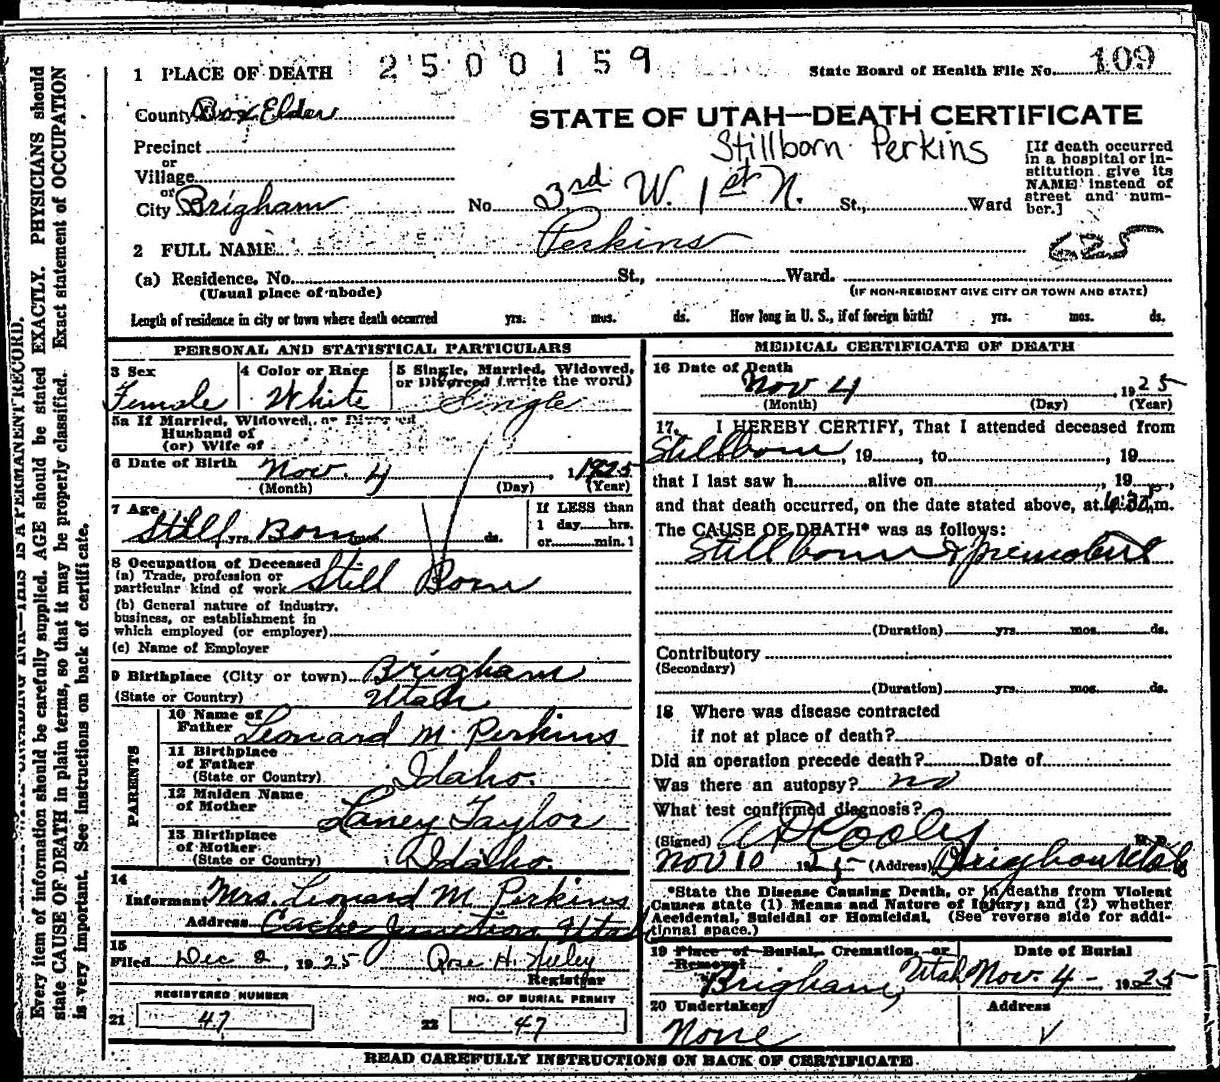 1 PLACE OF DEATH 2500159 State Board of Health File No. 109
County Box Elder STATE OF UTAH—DEATH CERTIFICATE
Precinct Stillborn Perkins
or
Village
or
City Brigham No. 3rd W. 1st N. St., Ward
[If death occurred
in a hospital or in-
stitution give its
NAME instead of
street and num-
ber.]
2 FULL NAME Perkins 625
(a) Residence, No. St., Ward.
(Usual place of abode) (IF NON-RESIDENT GIVE CITY OR TOWN AND STATE)
Length of residence in city or town where death occurred yrs. mos. ds. How long in U. S., if of foreign birth? yrs. mos. ds.
PERSONAL AND STATISTICAL PARTICULARS
3 Sex 4 Color or Race 5 Single, Married, Widowed,
or Divorced (write the word)
Female White Single
5a If Married, Widowed, or Divorced
Husband of
(or) Wife of
6 Date of Birth Nov. 4, 1925
(Month) (Day) (Year)
7 Age Still yrs. Born mos. ds.
If LESS than
1 day hrs.
or min.
8 Occupation of Deceased
(a) Trade, profession or
particular kind of work Still Born
(b) General nature of industry,
business, or establishment in
which employed (or employer)
(c) Name of Employer
9 Birthplace (City or town) Brigham
(State or Country) Utah
PARENTS
10 Name of
Father Leonard M. Perkins
11 Birthplace
of Father
(State or Country) Idaho.
12 Maiden Name
of Mother Laney Taylor
13 Birthplace
of Mother
(State or Country) Idaho.
14
Informant Mrs. Leonard M. Perkins
Address Cache Junction Utah
15
Filed Dec 2, 1925 Rose H.
Registrar
REGISTERED NUMBER NO. OF BURIAL PERMIT
21 47 22 47
MEDICAL CERTIFICATE OF DEATH
16 Date of Death
Nov 4, 1925
(Month) (Day) (Year)
17. I HEREBY CERTIFY, That I attended deceased from
Stillborn, 19, to, 19
that I last saw h alive on, 19,
and that death occurred, on the date stated above, at 6:30 P m.
The CAUSE OF DEATH* was as follows:
Stillborn &
(Duration) yrs. mos. ds.
Contributory
(Secondary)
(Duration) yrs. mos. ds.
18 Where was disease contracted
if not at place of death?
Did an operation precede death? Date of
Was there an autopsy? no
What test confirmed diagnosis?
(Signed) Cooley M. D.
Nov 10 1925 (Address) Brigham Utah
*State the Disease Causing Death, or in deaths from Violent
Causes state (1) Means and Nature of Injury; and (2) whether
Accidental, Suicidal or Homicidal. (See reverse side for addi-
tional space.)
19 Place of Burial, Cremation, or
Removal Date of Burial
Brigham, Utah Nov. 4 - 1925
20 Undertaker Address
None
READ CAREFULLY INSTRUCTIONS ON BACK OF CERTIFICATE
THIS IS A PERMANENT RECORD.
Every item of information should be carefully supplied. AGE should be stated EXACTLY. PHYSICIANS should
state CAUSE OF DEATH in plain terms, so that it may be properly classified. Exact statement of OCCUPATION
is very important. See instructions on back of certificate.